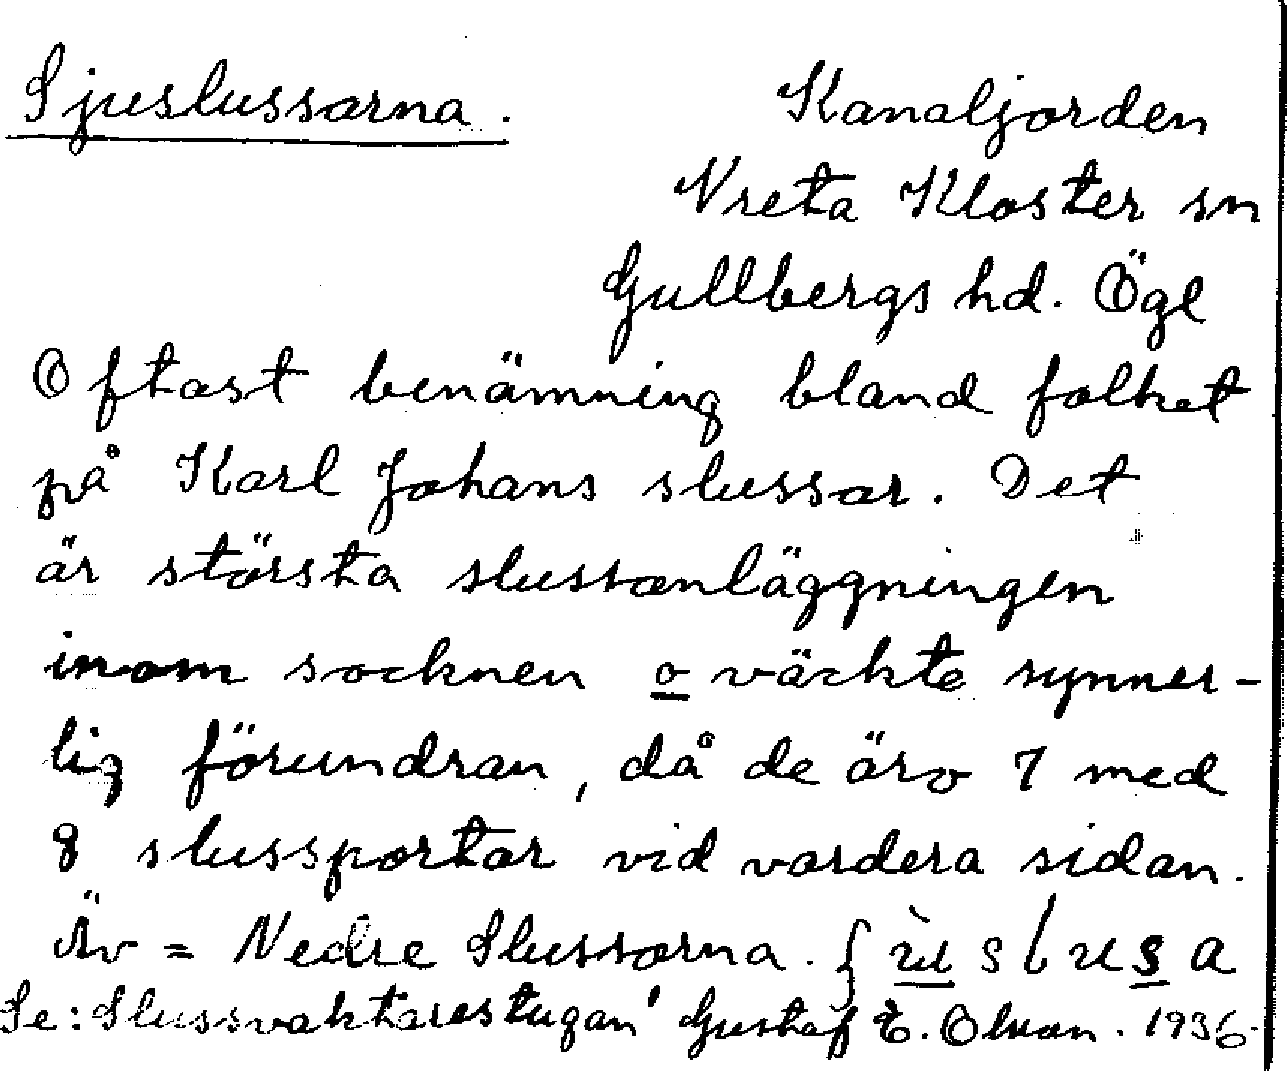 Sjuslussarna. Kanaljorden
Vreta Kloster sn
Gullbergs hd. Ögl
Oftast benämning bland folket
på Karl Johans slussar. Det
är största slussanläggningen
inom socknen o väckte synner-
lig förundran, då de äro 7 med
8 slussportar vid vardera sidan.
Äv = Nedre Slussarna. ʃ ù s l u s a
Se: Slussvaktarestugan Gustaf E. Olson. 1936